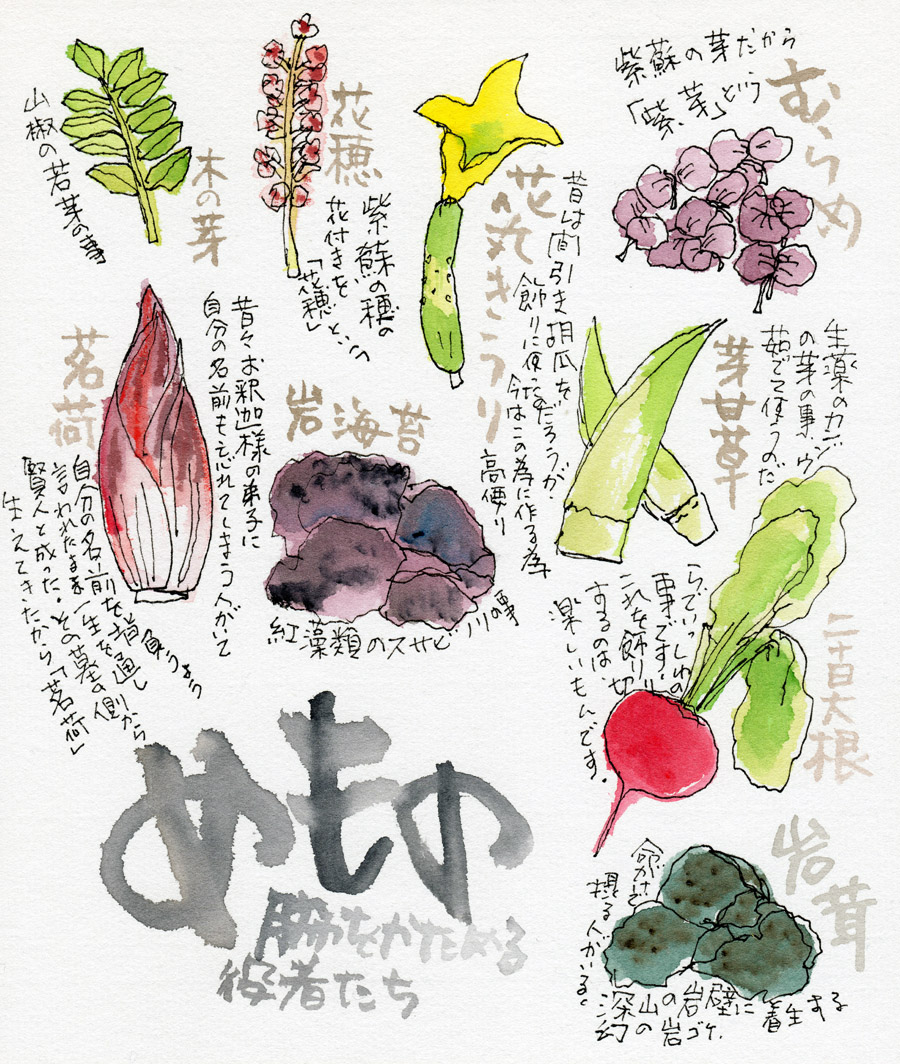 むらめ
紫蘇の芽だから
「紫芽」という
花穂
紫蘇の穂の
花付きを
「花穂」という
木の芽
山椒の若芽の事
花丸きうり
昔は間引き胡瓜を
飾りに使っただろうが
今はこの為に作る為
高価り
芽甘草
生薬のカンゾウ
の芽の事
茹でて使うのだ
茗荷
昔々お釈迦様の弟子に
自分の名前も忘れてしまう人がいて
自分の名前を背負うよう
言われたまま一生を通し
賢人と成った。その墓の側から
生えてきたから「茗荷」
岩海苔
紅藻類のスサビノリの事
二十日大根
らでいっしゅの
事です。
これを飾り切
するのは、
楽しいもんです。
岩茸
命がけで
摂る人がいる。
深山の岩壁に着生する
幻の岩ゴケ.
めもの
脇をかためる
役者たち